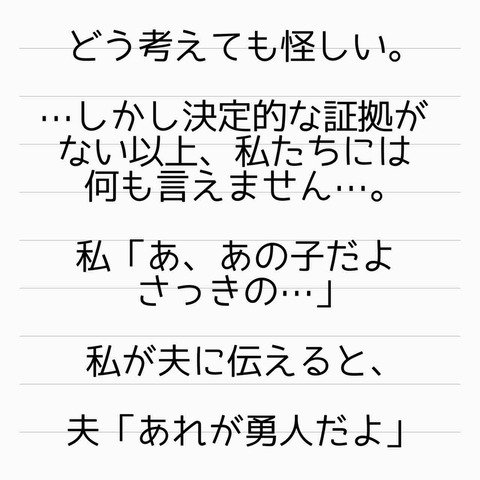 どう考えても怪しい。
…しかし決定的な証拠が
ない以上、私たちには
何も言えません…。
私「あ、あの子だよ
さっきの…」
私が夫に伝えると、
夫「あれが勇人だよ」